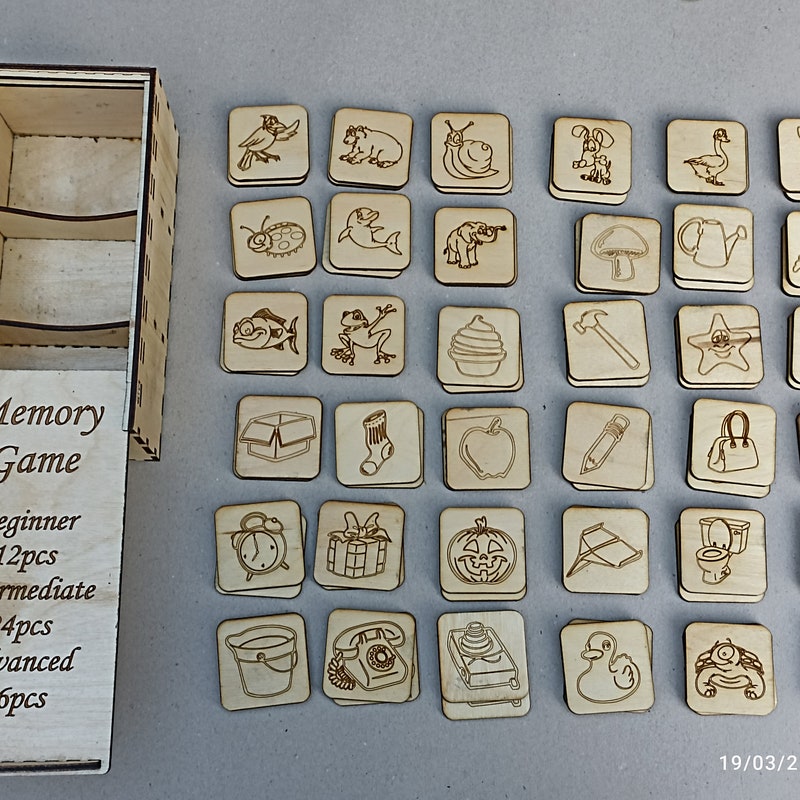 Memory
Game
eginner
12pcs
rmediate
4pcs
vanced
6pcs
19/03/2